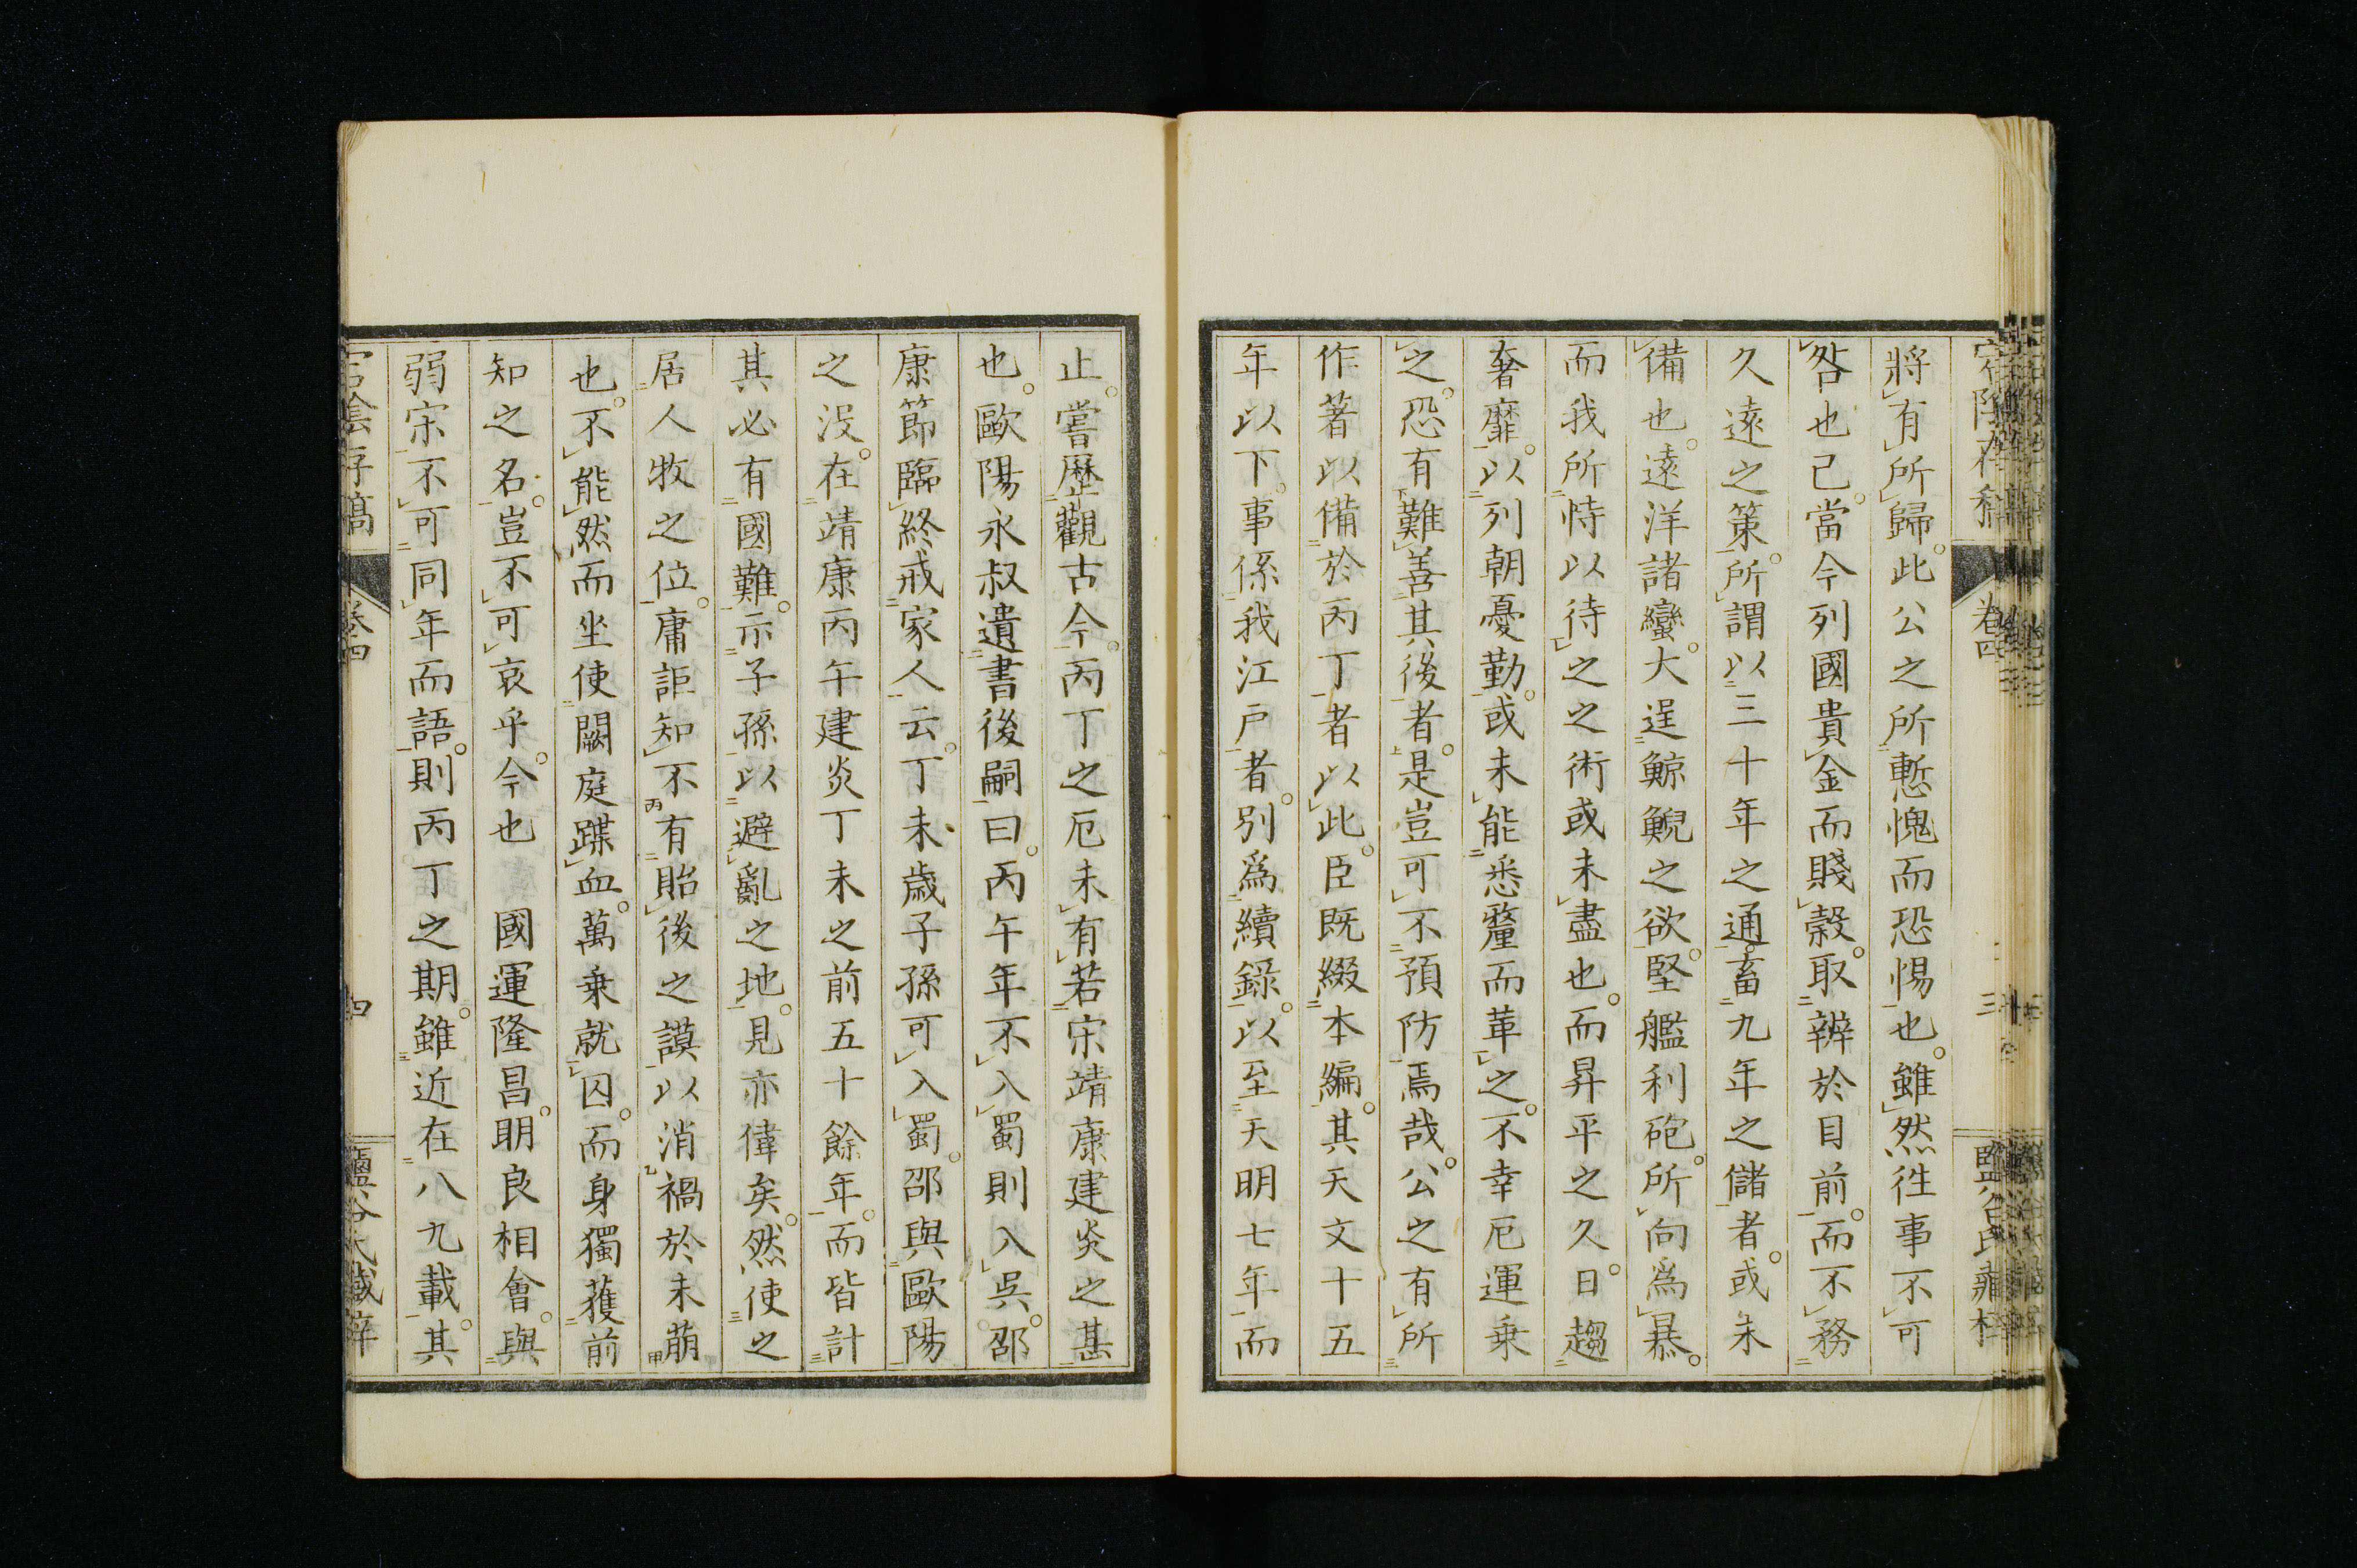 將有所歸。此公之所慙愧而恐惕也。雖然往事不可
咎也已。當今列國貴金而賤穀。取辨於目前。而不務
久遠之策。所謂以三十年之通。畜九年之儲者。或未
備也。遠洋諸蠻。大逞鯨鯢之欲。堅艦利砲。所向爲暴。
而我所恃以待之之術或未盡也。而昇平之久。日趨
奢靡。以列朝憂勤。或未能悉釐而革之。不幸厄運乗
之。恐有難善其後者。是豈可不預防焉哉。公之有所
作著以備於丙丁者以此。臣既綴本編。其天文十五
年以下。事係我江戸者。別爲續錄。以至天明七年而
止。嘗歷觀古今。丙丁之厄未有若宋靖康建炎之甚
也。歐陽永叔遺書後嗣曰。丙午年不入蜀則入吳。邵
康節臨終戒家人云。丁未歳子孫可入蜀。邵與歐陽
之没。在靖康丙午建炎丁未之前五十餘年。而皆計
其必有國難。示子孫以避亂之地。見亦偉矣。然使之
居人牧之位。庸詎知不有貽後之謨以消禍於未萠
也。不能然而坐使闕庭蹀血。萬乗就囚。而身獨獲前
知之名。豈不可哀乎。今也　國運隆昌。明良相會。與
弱宋不可同年而語。則丙丁之期。雖近在八九載。其
卷四
四